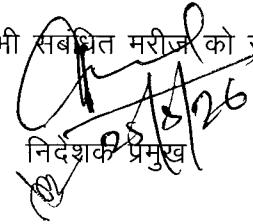 भी सबंधित मरीज को
25/8/26
निदेशक प्रमुख